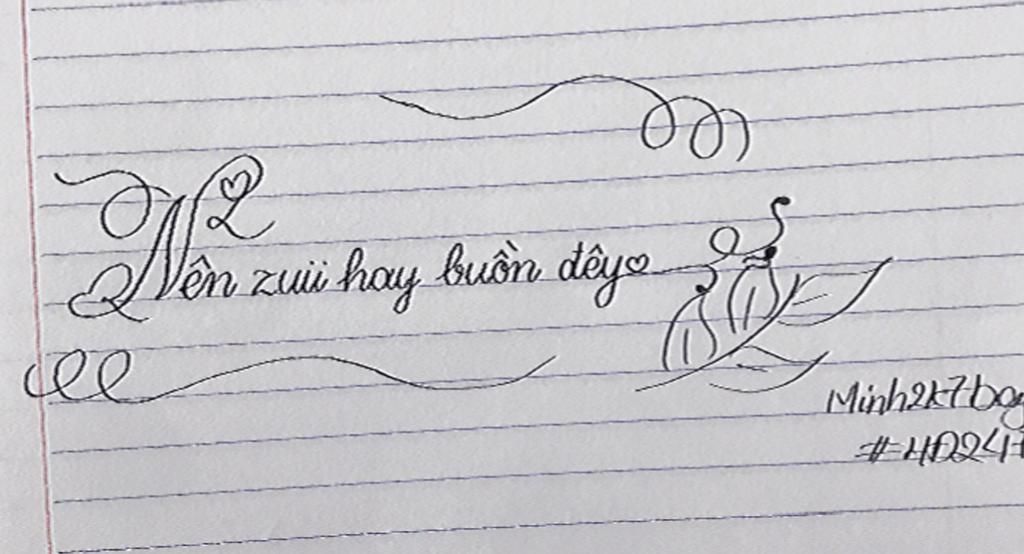 Nên zuii hay buồn đêy
Minh2k7boy